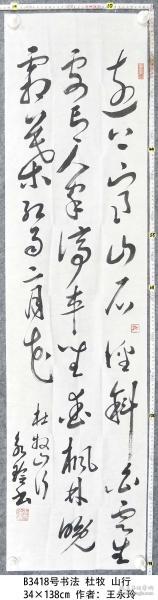 远上寒山石径斜白云生
处有人家停车坐爱枫林晚
霜叶红于二月花
杜牧山行
永玲书
B3418号书法 杜牧 山行
34×138cm 作者：王永玲